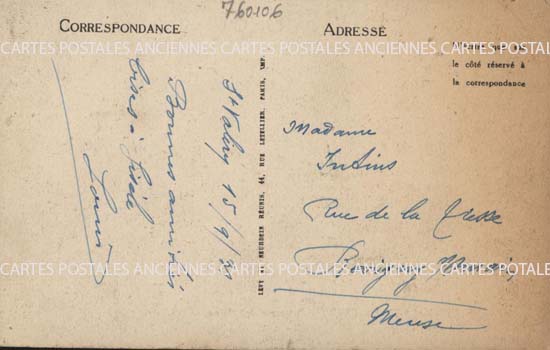 760106
CORRESPONDANCE
ADRESSE
le côté réservé à
la correspondance
CARTES POSTALES ANCIENNES CARTES POSTALES ANCIENNES CARTES POSTALES ANCIENNES
St Valery 15/9/21
Bonnes amitiés
bises à Gisèle
Louis
LÉVY ET NEURDEIN RÉUNIS, 44, RUE LETELLIER, PARIS, IMP.
Madame
Intins
Rue de la
Meuse
CARTES POSTALES ANCIENNES CARTES POSTALES ANCIENNES CARTES POSTALES ANCIENNES